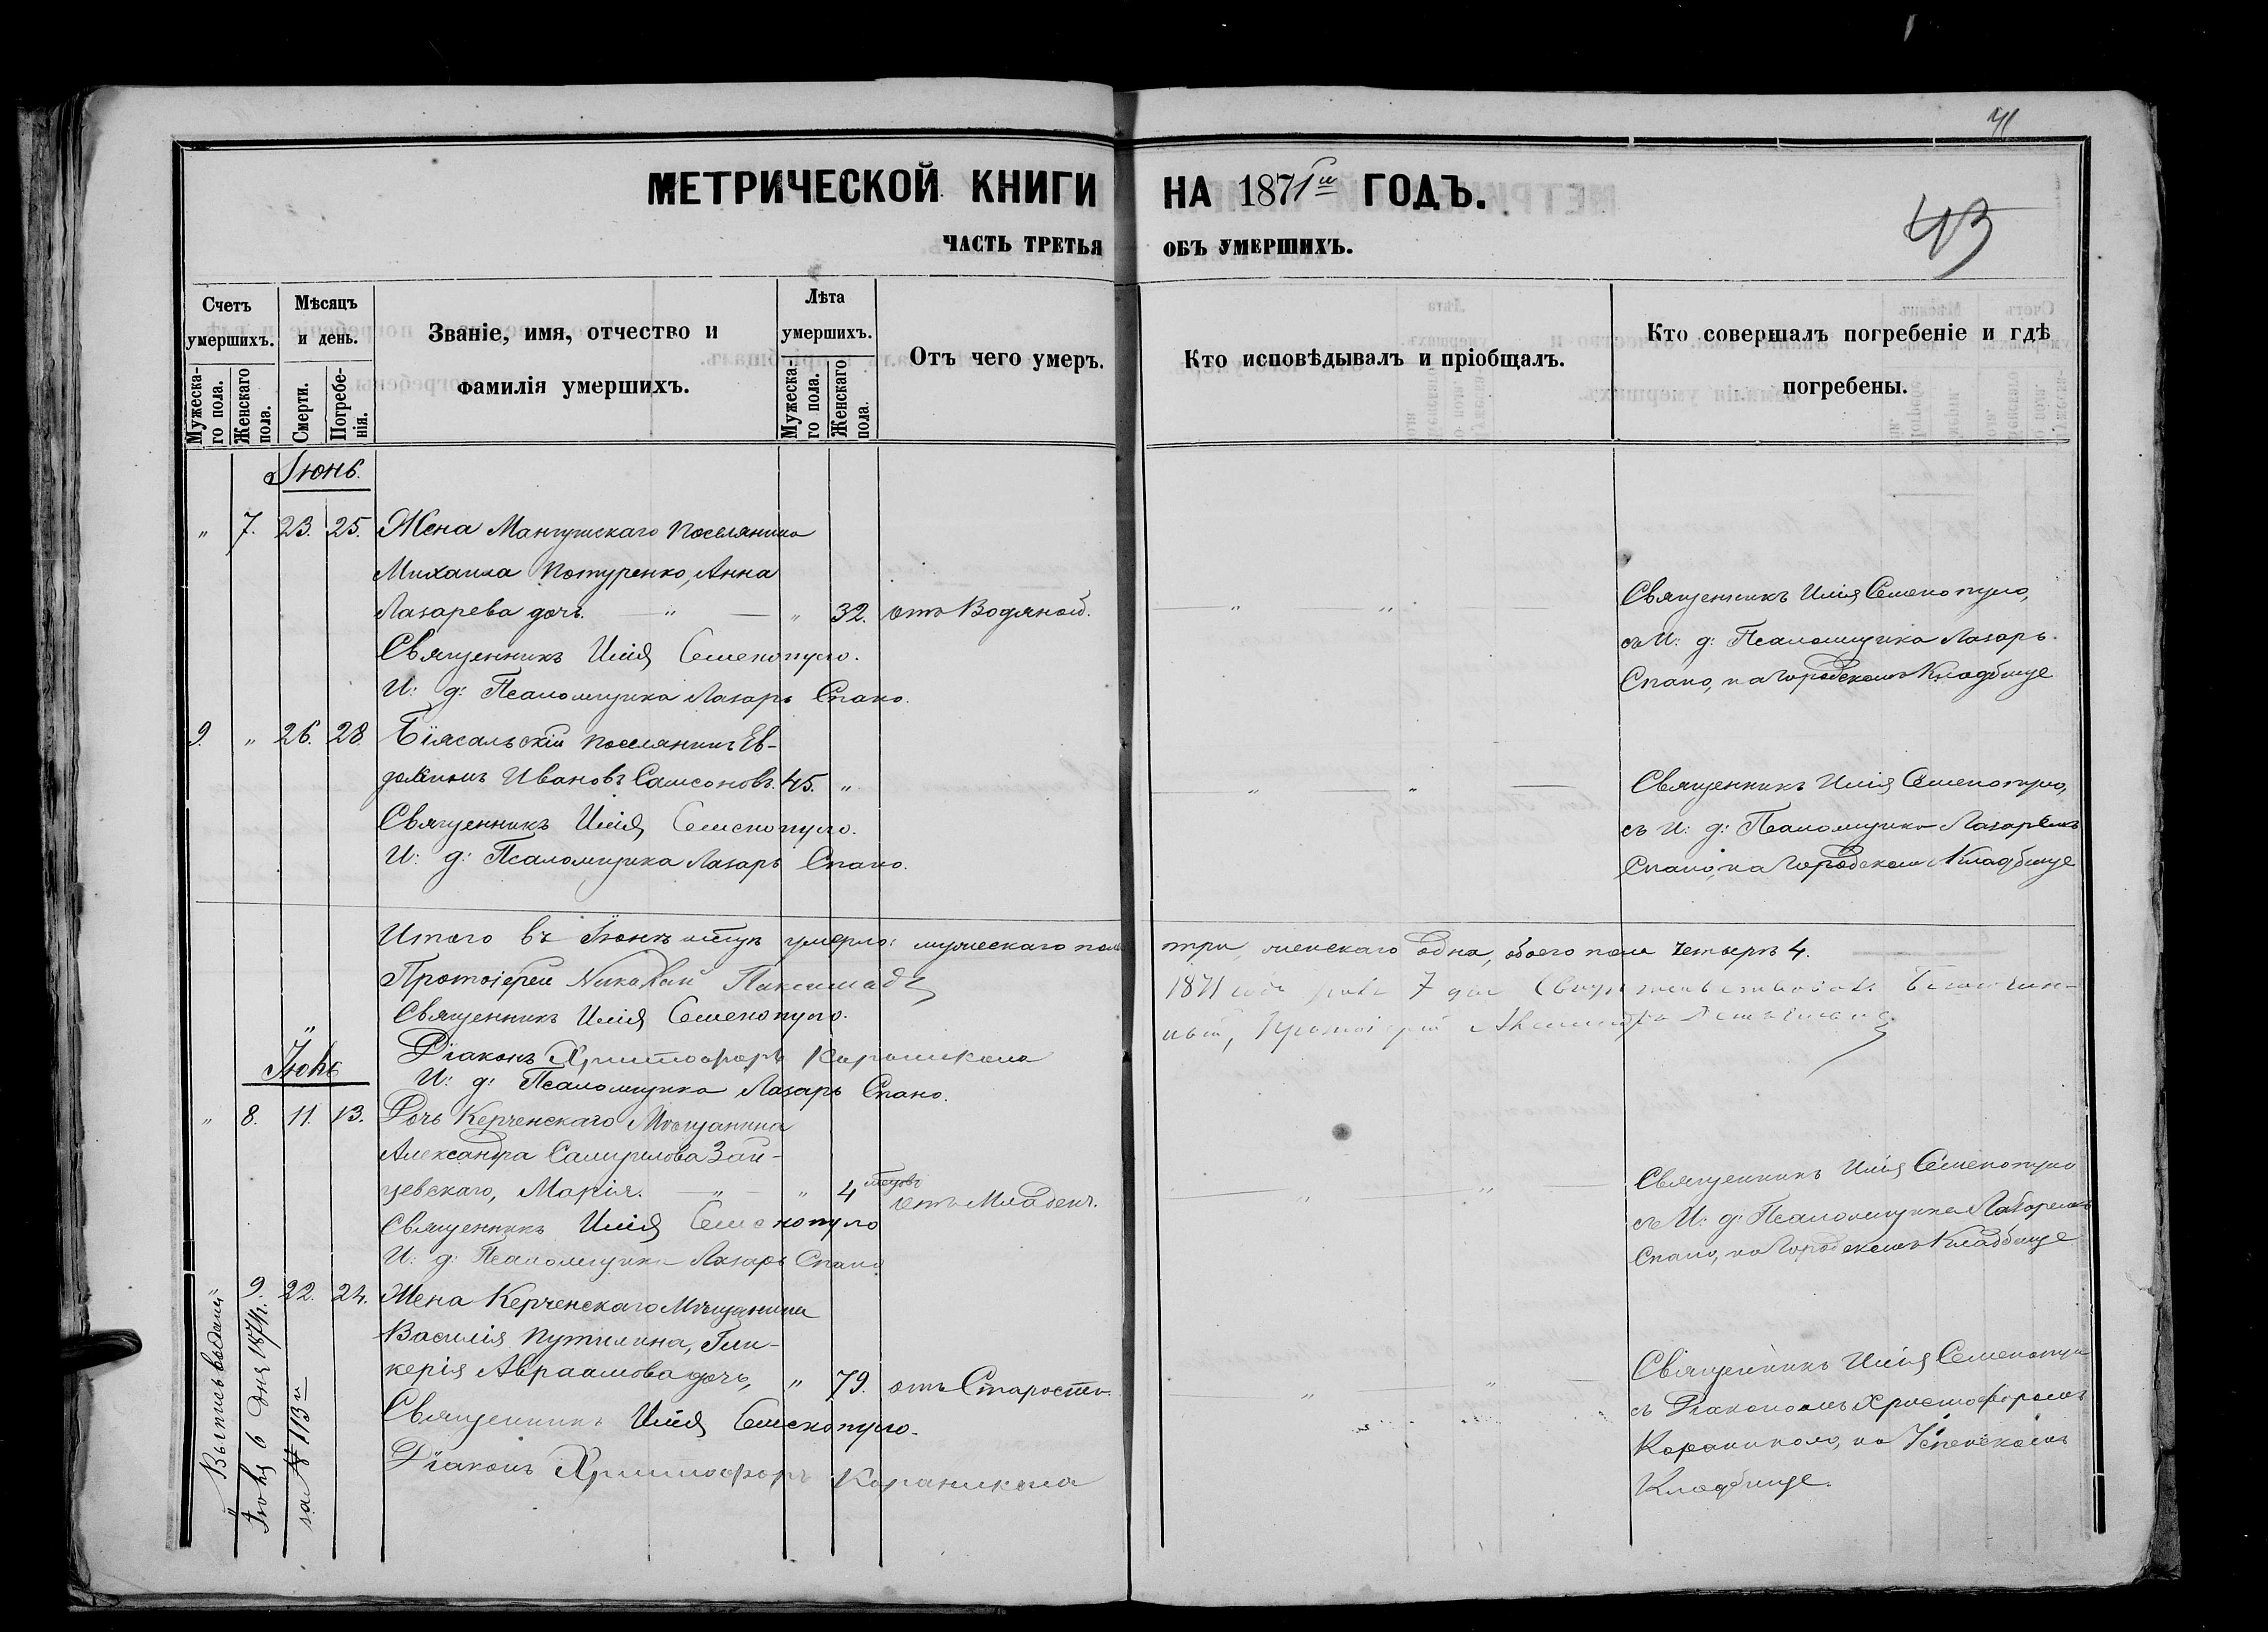 41
МЕТРИЧЕСКОЙ КНИГИ НА 1871й ГОДЪ.
43
ЧАСТЬ ТРЕТЬЯ ОБЪ УМЕРШИХЪ.
Счетъ умершихъ.
Мужескаго пола.
Женскаго пола.
Мѣсяцъ и день.
Смерти.
Погребенія.
Званіе, имя, отчество и
фамилія умершихъ.
Лѣта умершихъ.
Мужескаго пола.
Женскаго пола.
Отъ чего умеръ.
Кто исповѣдывалъ и пріобщалъ.
Кто совершалъ погребеніе и гдѣ
погребены.
Іюнь.
" 7. 23. 25. Жена Мангушскаго поселянина
Михаила Потуренко, Анна
Лазарева дочь. — " — " 32. отъ Водяной.
Священникъ Илія Семенопуло,
съ И: д: Псаломщика Лазарь
Спано, на Городскомъ Кладбище
Священникъ Илія Семенопуло.
И: д: Псаломщика Лазарь Спано.
9. " 26. 28. Біясальскій поселянинъ Ев-
докимъ Ивановъ Самсоновъ. 45. "
Священникъ Илія Семенопуло,
съ И: д: Псаломщика Лазаремъ
Спано, на Городскомъ Кладбище
Священникъ Илія Семенопуло.
И: д: Псаломщика Лазарь Спано.
Итого въ Іюнѣ мѣсяцѣ умерло: мужескаго пола три, женскаго одна, обоего пола четыре 4.
Протоіерей Николай
Священникъ Илія Семенопуло.
Діаконъ Христофоръ Караникола
И: д: Псаломщика Лазарь Спано.
1871 года 7 дня Свидѣтельствовалъ Благочин-
ный, Протоіерей
Іюль
" 8. 11. 13. Дочь Керченскаго Мѣщанина
Александра Зай-
цевскаго, Марія. — " — " 4 мѣсяцовъ отъ Младенч.
Священникъ Илія Семенопуло
съ И: д: Псаломщика Лазаремъ
Спано, на Городскомъ Кладбище
Священникъ Илія Семенопуло
И: д: Псаломщика Лазарь Спано
9. 22. 24. Жена Керченскаго Мѣщанина
Василія Путилина, Гли-
керія Авраамова дочь, " 79. отъ Старости.
Священникъ Илія Семенопуло
съ Діакономъ Христофоромъ
Караникола, на Успенскомъ
Кладбище.
Священникъ Илія Семенопуло.
Діаконъ Христофоръ Караникола
Выпись выдана
6 дня 1874 г.
за № 113й